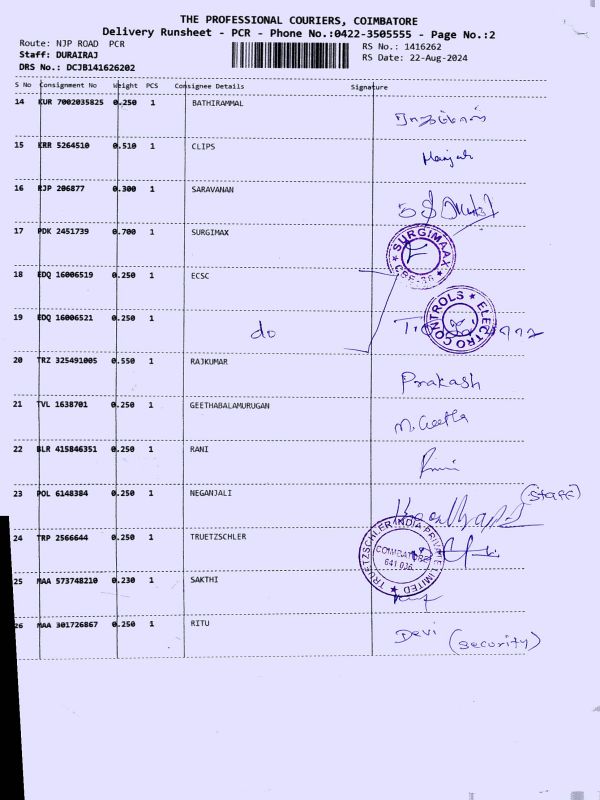 THE PROFESSIONAL COURIERS, COIMBATORE
Delivery Runsheet - PCR - Phone No.:0422-3505555 - Page No.:2
Route: NJP ROAD PCR
RS No.: 1416262
Staff: DURAIRAJ
RS Date: 22-Aug-2024
DRS No.: DCJB141626202
S No Consignment No Weight PCS Consignee Details Signature
14 KUR 7002035825 0.250 1 BATHIRAMMAL
15 KRR 5264510 0.510 1 CLIPS
16 RJP 206877 0.300 1 SARAVANAN
17 PDK 2451739 0.700 1 SURGIMAX
SURGIMAAX
18 EDQ 16006519 0.250 1 ECSC
19 EDQ 16006521 0.250 1 do
ELECTRO CONTROLS
20 TRZ 325491005 0.550 1 RAJKUMAR Prakash
21 TVL 1638701 0.250 1 GEETHABALAMURUGAN M. Geetha
22 BLR 415846351 0.250 1 RANI
23 POL 6148384 0.250 1 NEGANJALI (staff)
24 TRP 2566644 0.250 1 TRUETZSCHLER
TRUETZSCHLER INDIA PRIVATE LIMITED
COIMBATORE
25 MAA 573748210 0.230 1 SAKTHI
26 MAA 301726867 0.250 1 RITU Devi (security)